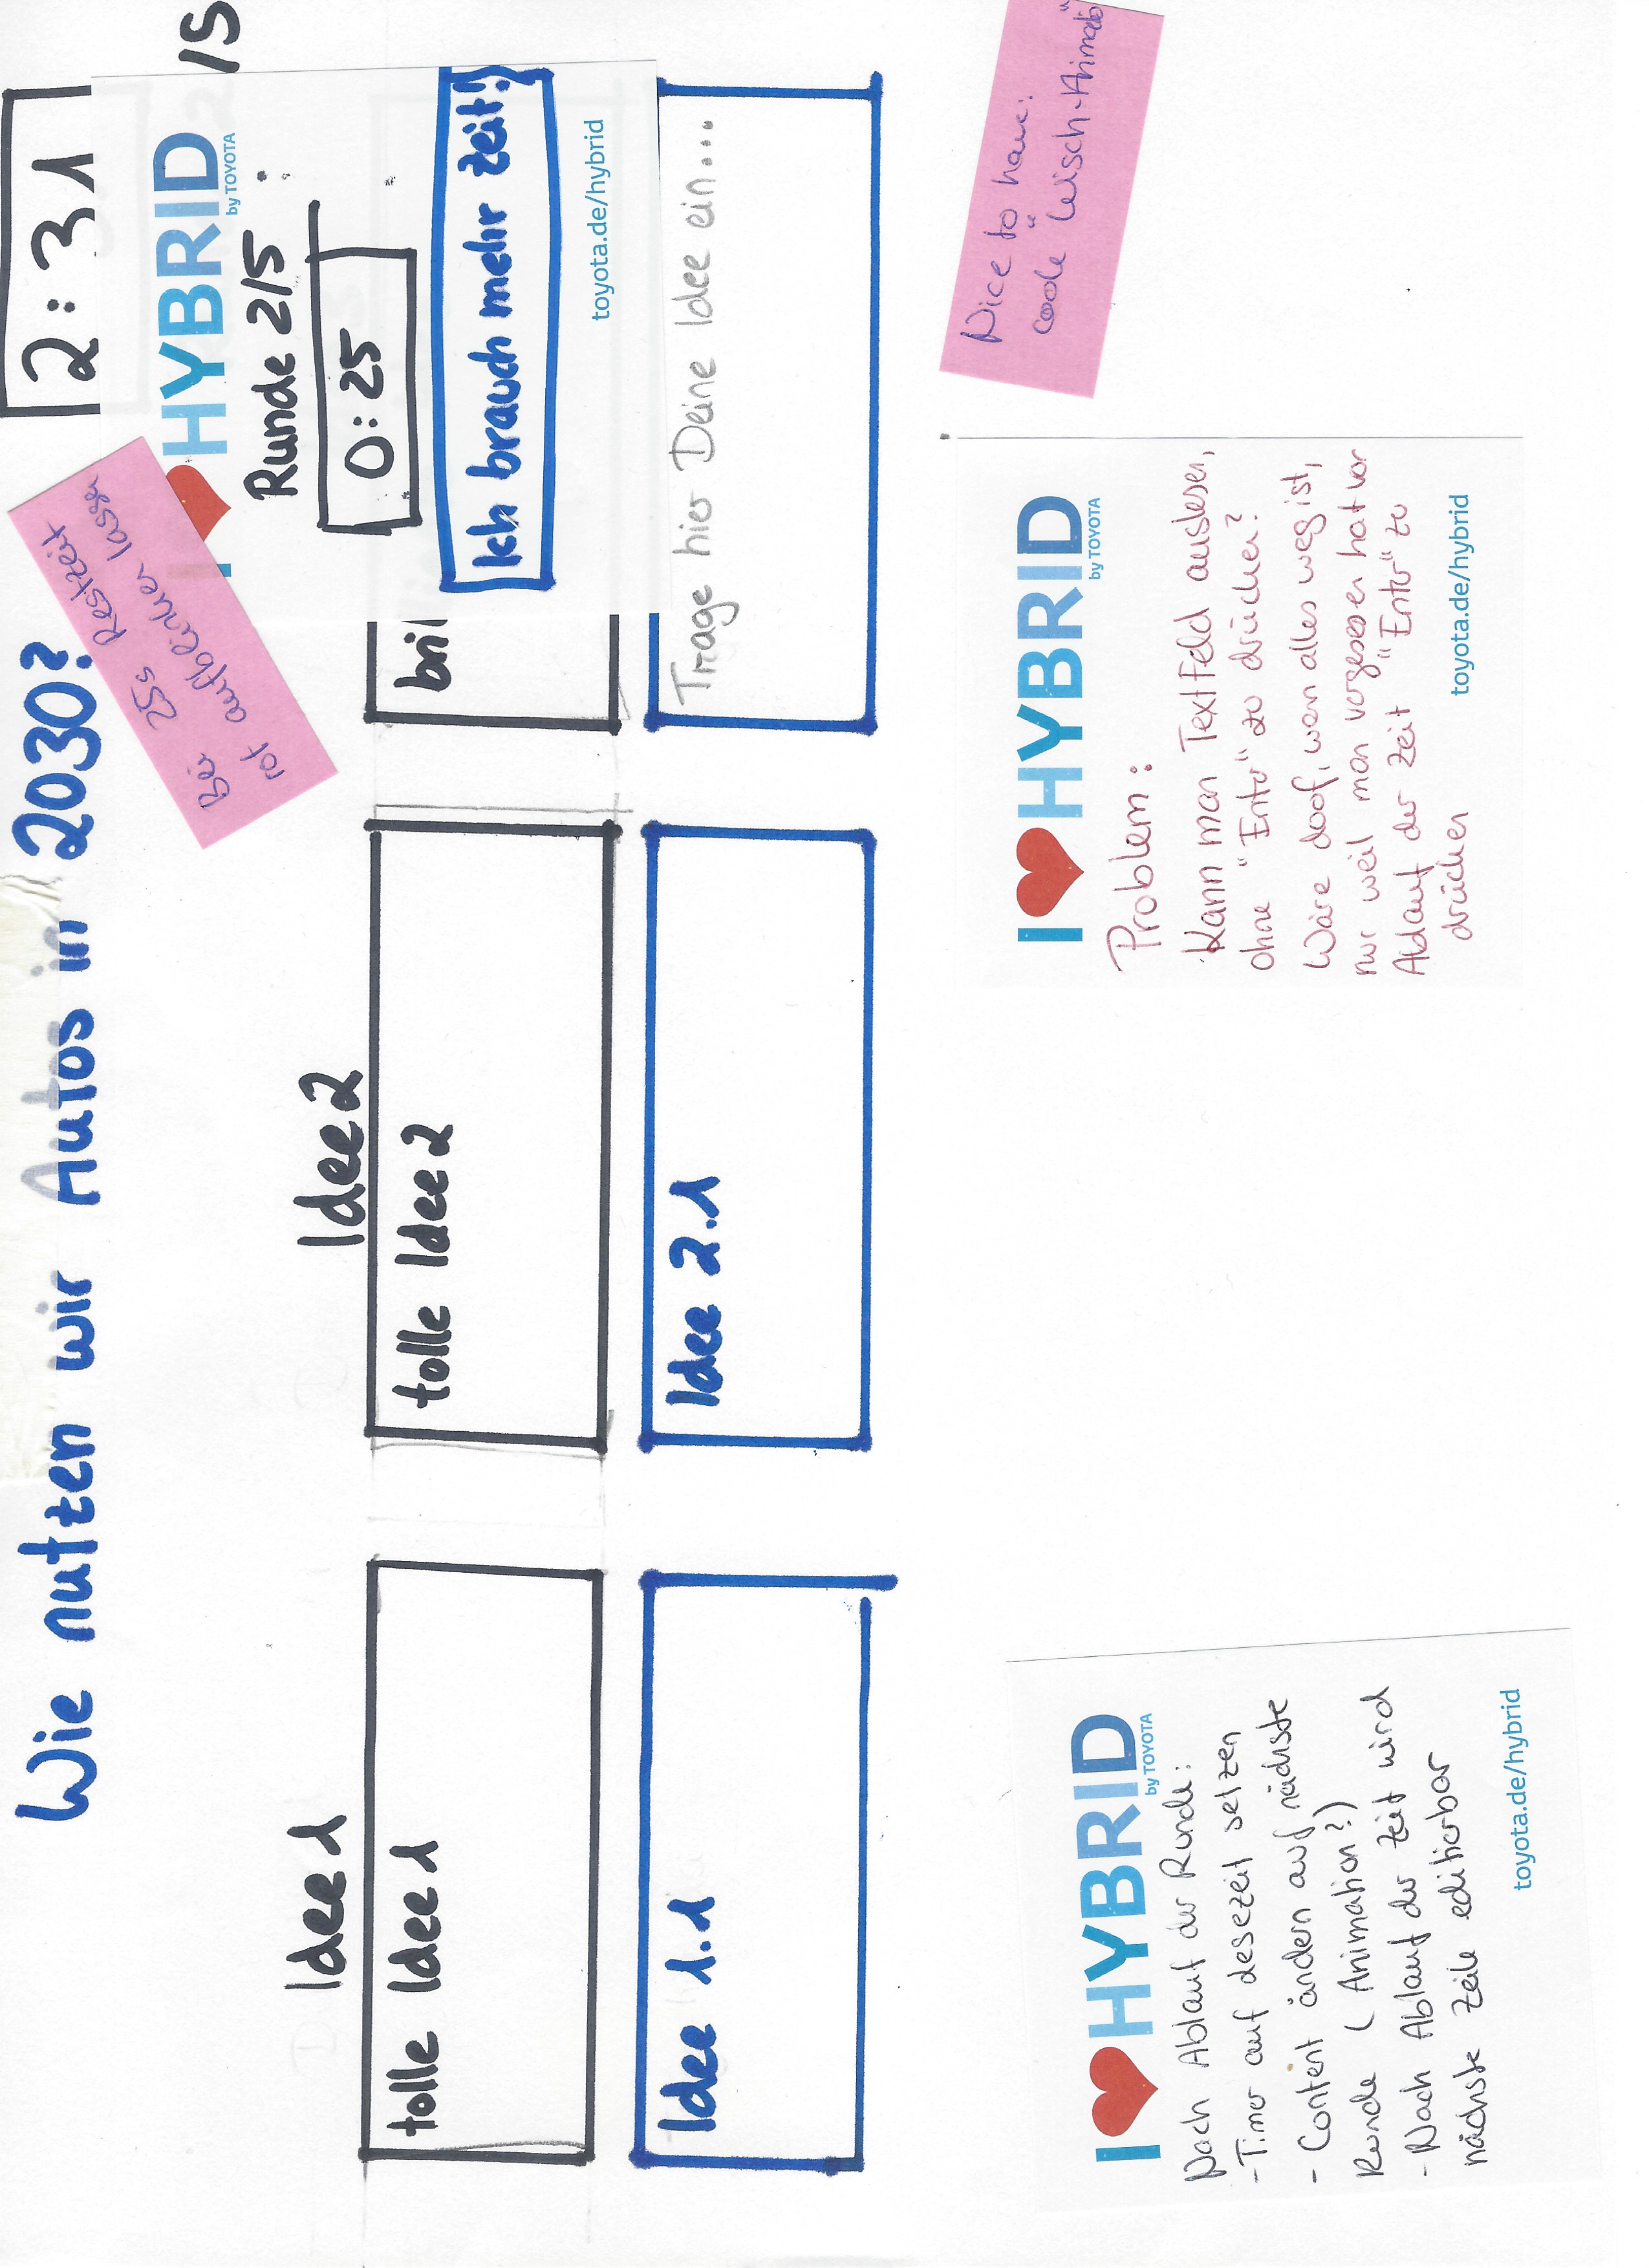 Wie nutzen wir Autos in 2030?
2:31
Bei 25s Restzeit
rot aufblinken lassen
I HYBRID
by TOYOTA
/5
Runde 2/5 :
0:25
Ich brauch mehr Zeit!
toyota.de/hybrid
Idee 1
Idee 2
tolle Idee 1
tolle Idee 2
bril
Idee 1.1
Idee 2.1
Trage hier Deine Idee ein...
I HYBRID
by TOYOTA
Nach Ablauf der Runde:
-Timer auf Lesezeit setzen
- Content ändern auf nächste
Runde (Animation?)
-Nach Ablauf der Zeit wird
nächste Zeile editierbar
toyota.de/hybrid
I HYBRID
by TOYOTA
Problem:
Kann man TextFeld auslesen,
ohne "Enter" zu drücken?
Wäre doof, wenn alles weg ist,
nur weil man vergessen hat vor
Ablauf der Zeit "Enter" zu
drücken
toyota.de/hybrid
Nice to have:
coole "Wisch-Animatio"